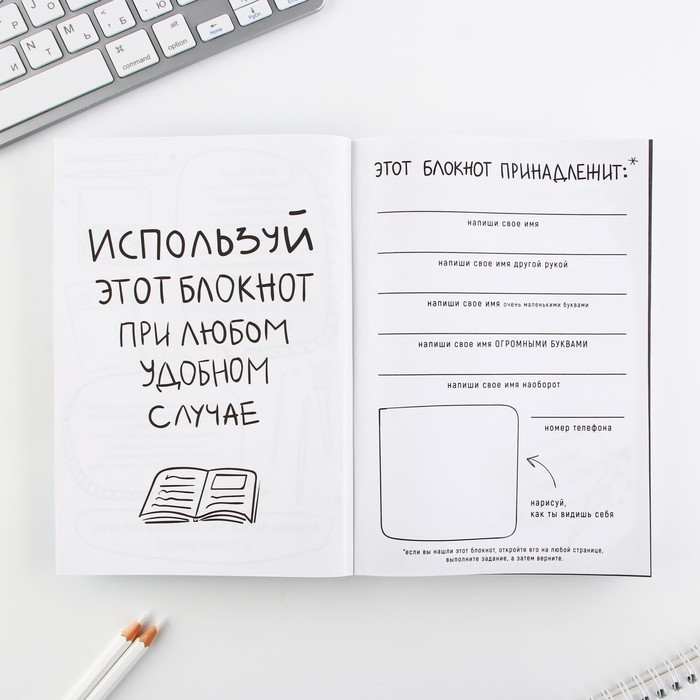 command
option
alt
ИСПОЛЬЗУЙ
ЭТОТ БЛОКНОТ
ПРИ ЛЮБОМ
УДОБНОМ
СЛУЧАЕ
ЭТОТ БЛОКНОТ ПРИНАДЛЕЖИТ:*
напиши свое имя
напиши свое имя другой рукой
напиши свое имя очень маленькими буквами
напиши свое имя ОГРОМНЫМИ БУКВАМИ
напиши свое имя наоборот
номер телефона
нарисуй,
как ты видишь себя
*если вы нашли этот блокнот, откройте его на любой странице,
выполните задание, а затем верните.